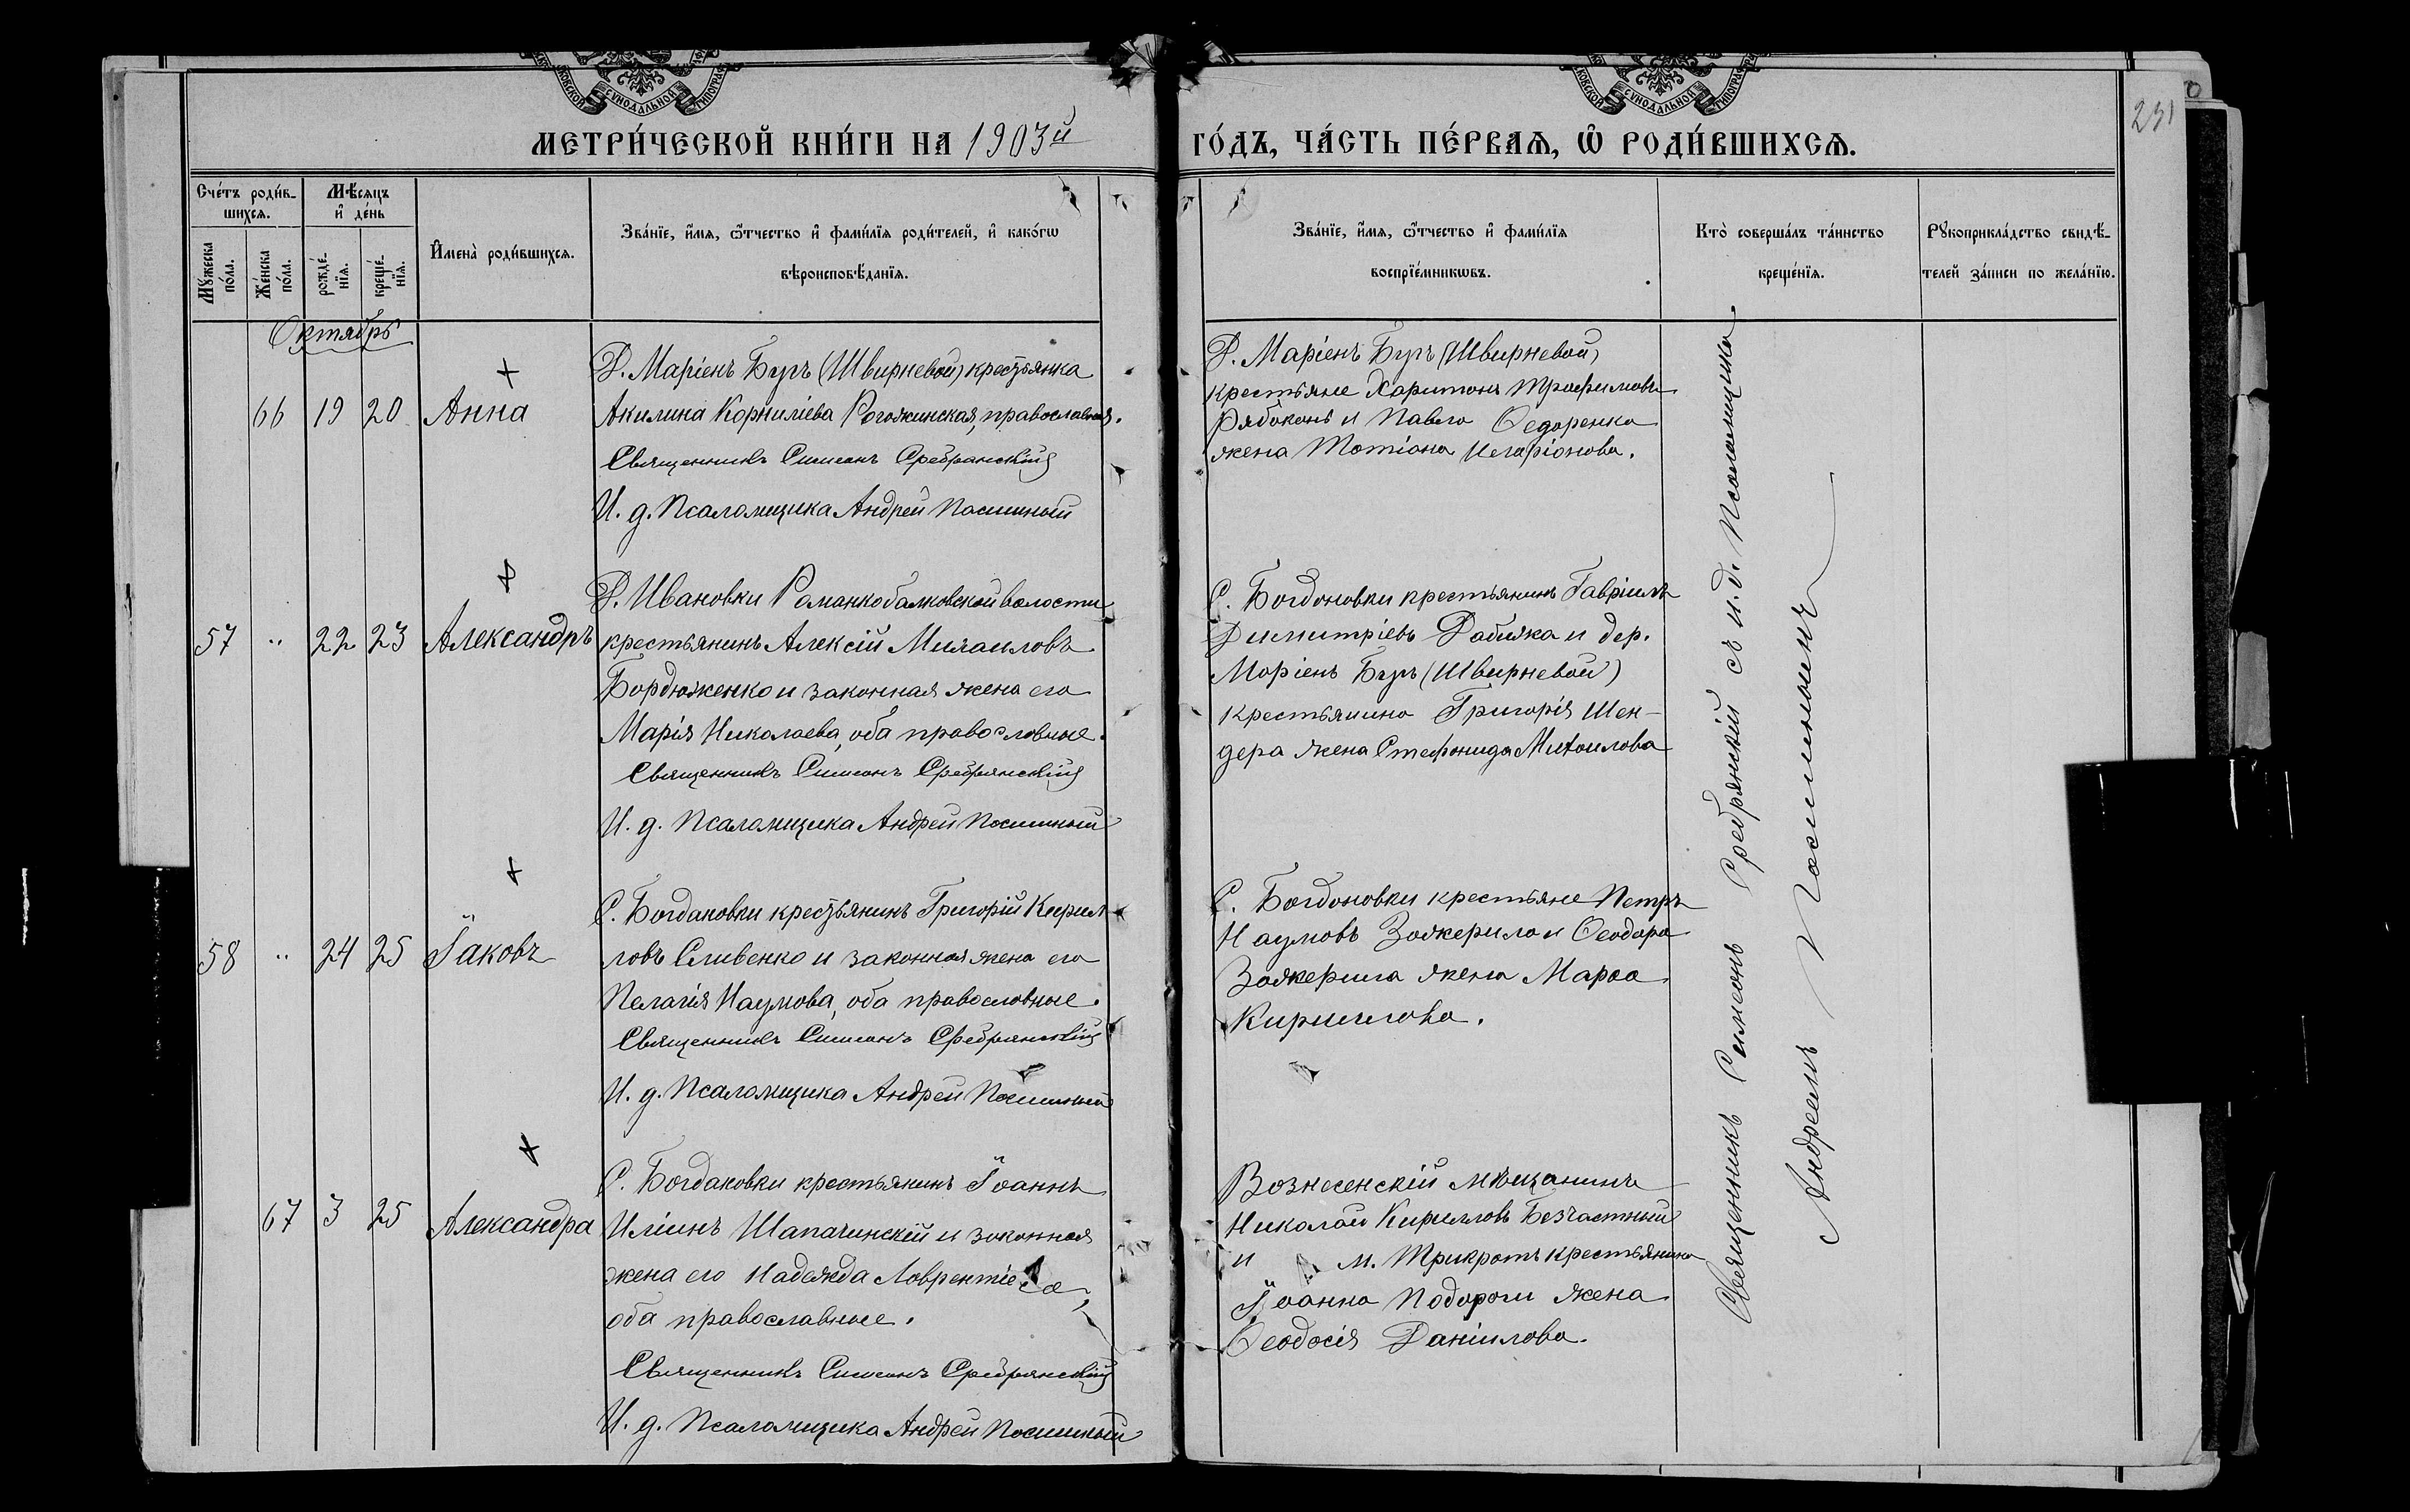 МЕТРИ́ЧЕСКОЙ КНИ́ГИ НА 1903й ГО́ДЪ, ЧА́СТЬ ПЕ́РВАѦ, Ѽ РОДИ́ВШИХСѦ.
231
Сче́тъ роди́в-
шихсѧ.
Мѣ́сѧцъ
и҆ де́нь
Мꙋ́жеска
по́ла.
Же́нска
по́ла.
рожде́-
нїѧ.
креще́-
нїѧ.
И҆мена̀ роди́вшихсѧ.
Зва́нїе, и҆́мѧ, ѻ҆́тчество и҆ фами́лїѧ роди́телей, и҆ како́гѡ
вѣроисповѣ́данїѧ.
Зва́нїе, и҆́мѧ, ѻ҆́тчество и҆ фами́лїѧ
воспрїе́мникѡвъ.
Кто̀ соверша́лъ та́инство
креще́нїѧ.
Рꙋкоприкла́дство свидѣ́-
телей за́писи по жела́нїю.
Октябрь
66 19 20 Анна
Д. Маріенъ Буръ (Швирневой) крестьянка
Акилина Корниліева Рогожинская, православная.
Священникъ Симеонъ Сребрянскій
И. д. Псаломщика Андрей Посмитный
Д. Маріенъ Буръ (Швирневой)
крестьяне Харитонъ Трофимовъ
Рябоконь и Павла Ѳедоренка
жена Татіана Иларіонова.
57 " 22 23 Александръ
Д. Ивановки Романкобалковской волости
крестьянинъ Алексій Михаиловъ
Бордюженко и законная жена его
Марія Николаева, оба православные.
Священникъ Симеонъ Сребрянскій
И. д. Псаломщика Андрей Посмитный
С. Богдановки крестьянинъ Гавріилъ
Димитріевъ Дабижа и дер.
Маріенъ Буръ (Швирневой)
крестьянина Григорія Шен-
дера жена Стефанида Михаилова
58 " 24 25 Іаковъ
С. Богдановки крестьянинъ Григорій Кирил-
ловъ Сливенко и законная жена его
Пелагія Наумова, оба православные.
Священникъ Симеонъ Сребрянскій
И. д. Псаломщика Андрей Посмитный
С. Богдановки крестьяне Петръ
Наумовъ Зажерило и Ѳеодора
Зажерила жена Марѳа
Кириллова.
67 3 25 Александра
С. Богдановки крестьянинъ Іоаннъ
Иліинъ Шапачинскій и законная
жена его Надежда Лаврентіева,
оба православные.
Священникъ Симеонъ Сребрянскій
И. д. Псаломщика Андрей Посмитный
Вознесенскій мѣщанинъ
Николай Кирилловъ Безчастный
и м. Трикратъ крестьянина
Іоанна Подороги жена
Ѳеодосія Даніилова.
Священникъ Симеонъ Сребрянскій съ и. д. Псаломщика
Андреемъ